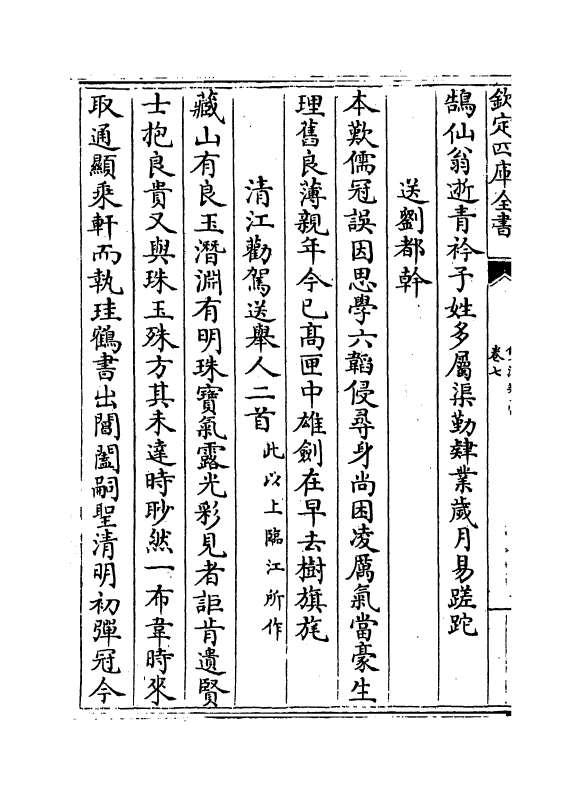 欽定四庫全書
卷七
鵠仙翁逝青衿子姓多屬渠勤肄業歲月易蹉跎
送劉都幹
本歎儒冠誤因思學六韜侵尋身尚困凌厲氣當豪生
理舊良薄親年今已髙匣中雄劍在早去樹旗旄
清江勸駕送舉人二首此以上臨江所作
藏山有良玉潛淵有明珠寳氣露光彩見者詎肯遺賢
士抱良貴又與珠玉殊方其未達時眇然一布韋時來
取通顯乘軒而執珪鶴書出閶闔嗣聖清明初彈冠今